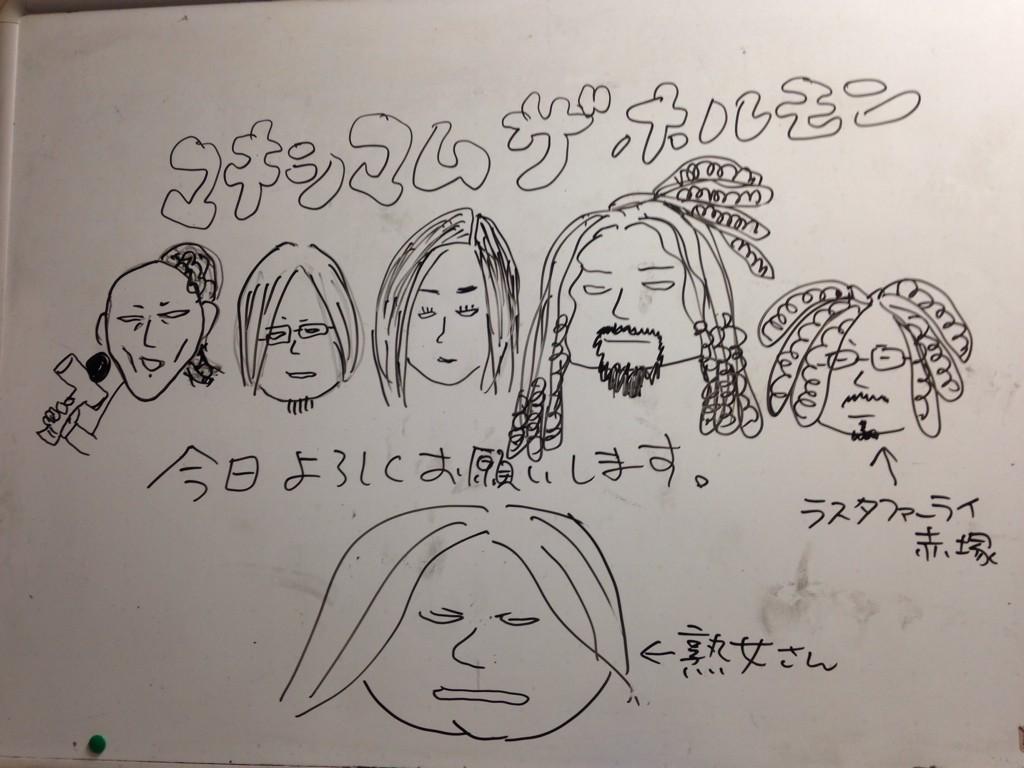 マキシマム ザ ホルモン
今日よろしくお願いします。
ラスタファーライ
赤塚
←熟女さん